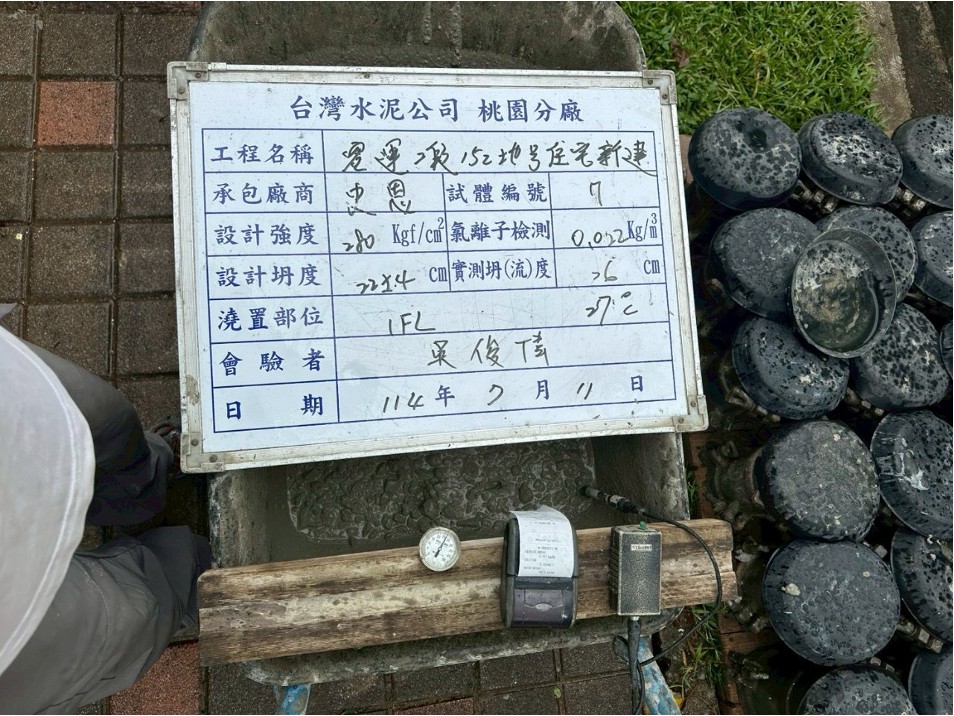 台灣水泥公司 桃園分廠
工程名稱 客運二段152地号住宅新建
承包廠商 忠恩 試體編號 7
設計強度 280 Kgf/cm² 氯離子檢測 0.022 Kg/m³
設計坍度 22±4 cm 實測坍(流)度 26 cm
澆置部位 1FL 27℃
會驗者 吳俊億
日期 114年7月11日